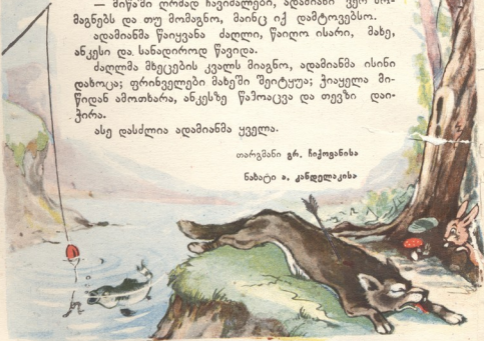 — მიწაში ღრმად ჩავიმალები, ადამიანი ვერ მო-
მაგნებს და თუ მომაგნო, მაინც იქ დამტოვებსო.
ადამიანმა წაიყვანა ძაღლი, წაიღო ისარი, მახე,
ანკესი და სანადიროდ წავიდა.
ძაღლმა მხეცების კვალს მიაგნო, ადამიანმა ისინი
დახოცა; ფრინველები მახეში შეიტყუა; ჭიაყელა მი-
წიდან ამოთხარა, ანკესზე წამოაცვა და თევზი დაი-
ჭირა.
ასე დასძლია ადამიანმა ყველა.
თარგმანი გრ. ჩიქოვანისა
ნახატი ა. კანდელაკისა